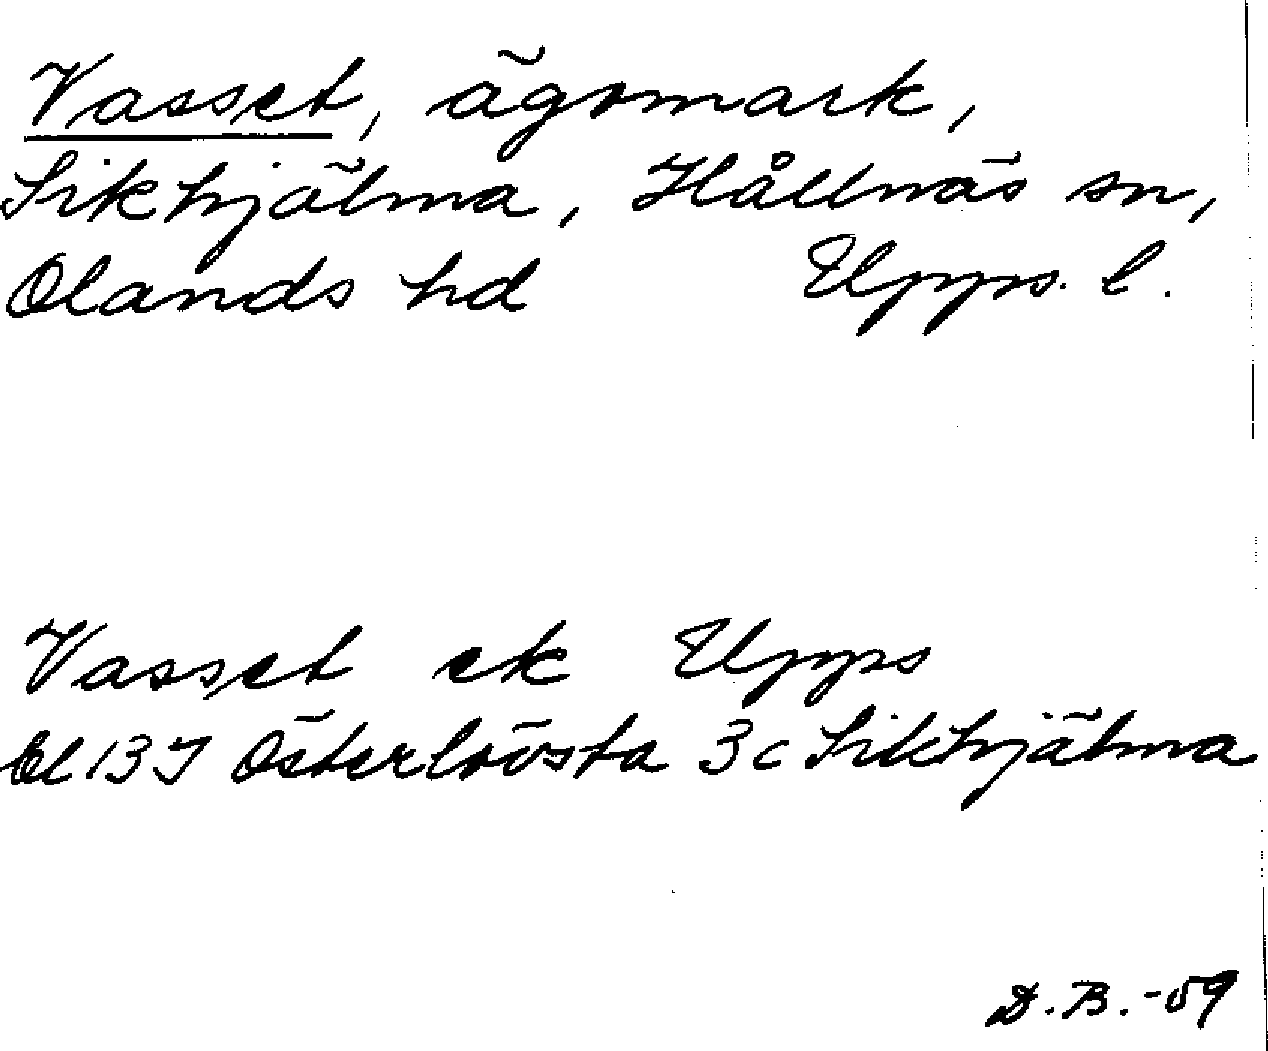 Vasset, ägomark,
Sikhjälma, Hållnäs sn,
Olands hd Upps. l.
Vasset ek Upps
Bl 13J Österlövsta 3c Sikhjälma
D.B.-59